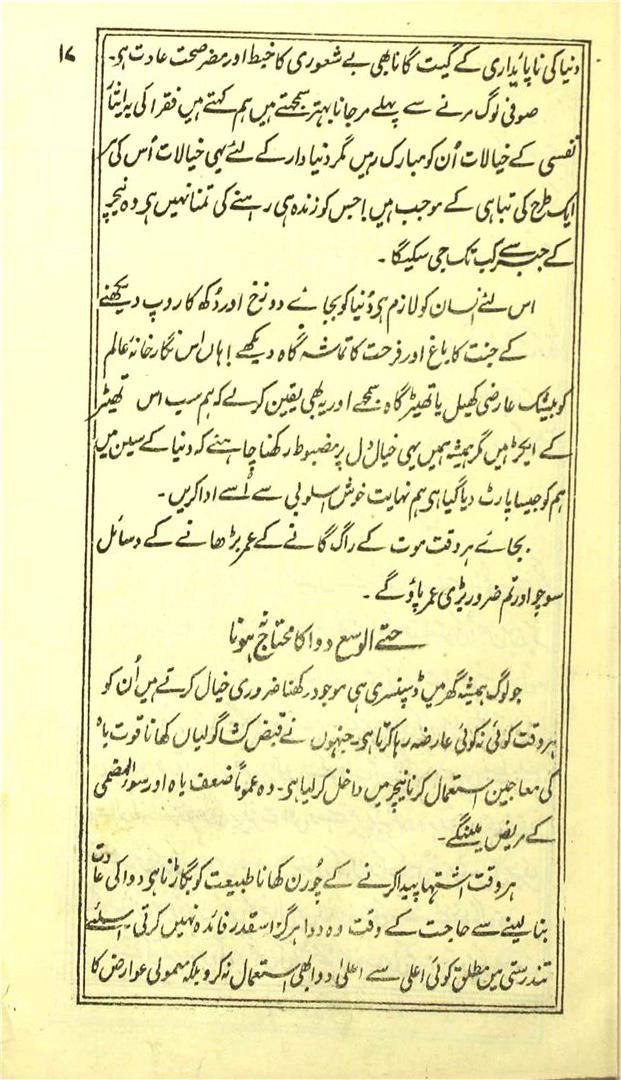 ۱۷
دنیا کی ناپائداری کے گیت گانا بھی بے شعوری کا خبط اور مضر صحت عادت ہی۔
صوفی لوگ مرنے سے پہلے مر جانا بہتر سمجھتے ہیں ہم کہتے ہیں فقرا کی یہ ایثار
نفسی کے خیالات اُن کو مبارک رہیں مگر دنیا دار کے لئے یہی خیالات اُس کی ہر
ایک طرح کی تباہی کے موجب ہیں! جس کو زندہ ہی رہنے کی تمنا نہیں ہی وہ نیچر
کے جبر سے کب تک جی سکیگا۔
اس لئے انسان کو لازم ہی دُنیا کو بجائے دوزخ اور دُکھ کا روپ دیکھنے
کے جنت کا باغ اور فرحت کا تماشہ گاہ دیکھے! ہاں اس نگار خانۂ عالم
کو بیشک عارضی کھیل یا تھیٹر گاہ سمجھے اور یہ بھی یقین کرلے کہ ہم سب اس تھیٹر
کے ایکٹر ہیں مگر ہمیشہ ہمیں یہی خیال دل پر مضبوط رکھنا چاہئے کہ دنیا کے سین میں
ہم کو جیسا پارٹ دیا گیا ہی ہم نہایت خوش اسلوبی سے اُسے ادا کریں۔
بجائے ہر وقت موت کے راگ گانے کے عمر بڑھانے کے وسائل
سوچو اور تم ضرور بڑی عمر پاؤ گے۔
حتے الوسع دوا کا محتاج نہ ہونا
جو لوگ ہمیشہ گھر میں ڈسپنسری ہی موجود رکھنا ضروری خیال کرتے ہیں اُن کو
ہر وقت کوئی نہ کوئی عارضہ رہا کرتا ہی۔ جنہوں نے قبض کشا گولیاں کھانا قوت باہ
کی معاجین استعمال کرنا نیچر میں داخل کر لیا ہی۔ وہ عموماً ضعف باہ اور سوء الہضمی
کے مریض ملینگے۔
ہر وقت اشتہا پیدا کرنے کے چُورن کھانا طبیعت کو بگاڑنا ہی دوا کی عادت
بنا لینے سے حاجت کے وقت وہ دوا ہرگز اسقدر فائدہ نہیں کرتی۔ اسلئے
تندرستی میں مطلق کوئی اعلی سے اعلیٰ دوا بھی استعمال نہ کرو بلکہ معمولی عوارض کا